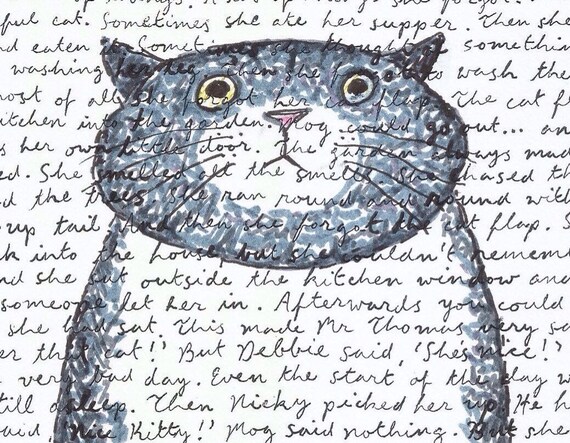 ful cat. Sometimes she ate her supper. Then she
nd eaten it. Sometimes she thought of somethin
washing her leg. Then she forgot to wash the
most of all she forgot her cat flap. The cat f
kitchen into the garden. Mog could go out... an
s her own little door. The garden always mad
ed. She smelled all the smells. She chased th
d the trees. She ran round and round with
up tail. And then she forgot the cat flap. S
k into the house but she couldn't remem
nd she sat outside the kitchen window and
someone let her in. Afterwards you could
she had sat. This made Mr Thomas very sa
er that cat!' But Debbie said, 'Shes nice!'
very bad day. Even the start of the day w
till asleep. Then Nicky picked her up. He h
said, 'Nice Kitty!' Mog said nothing. But she